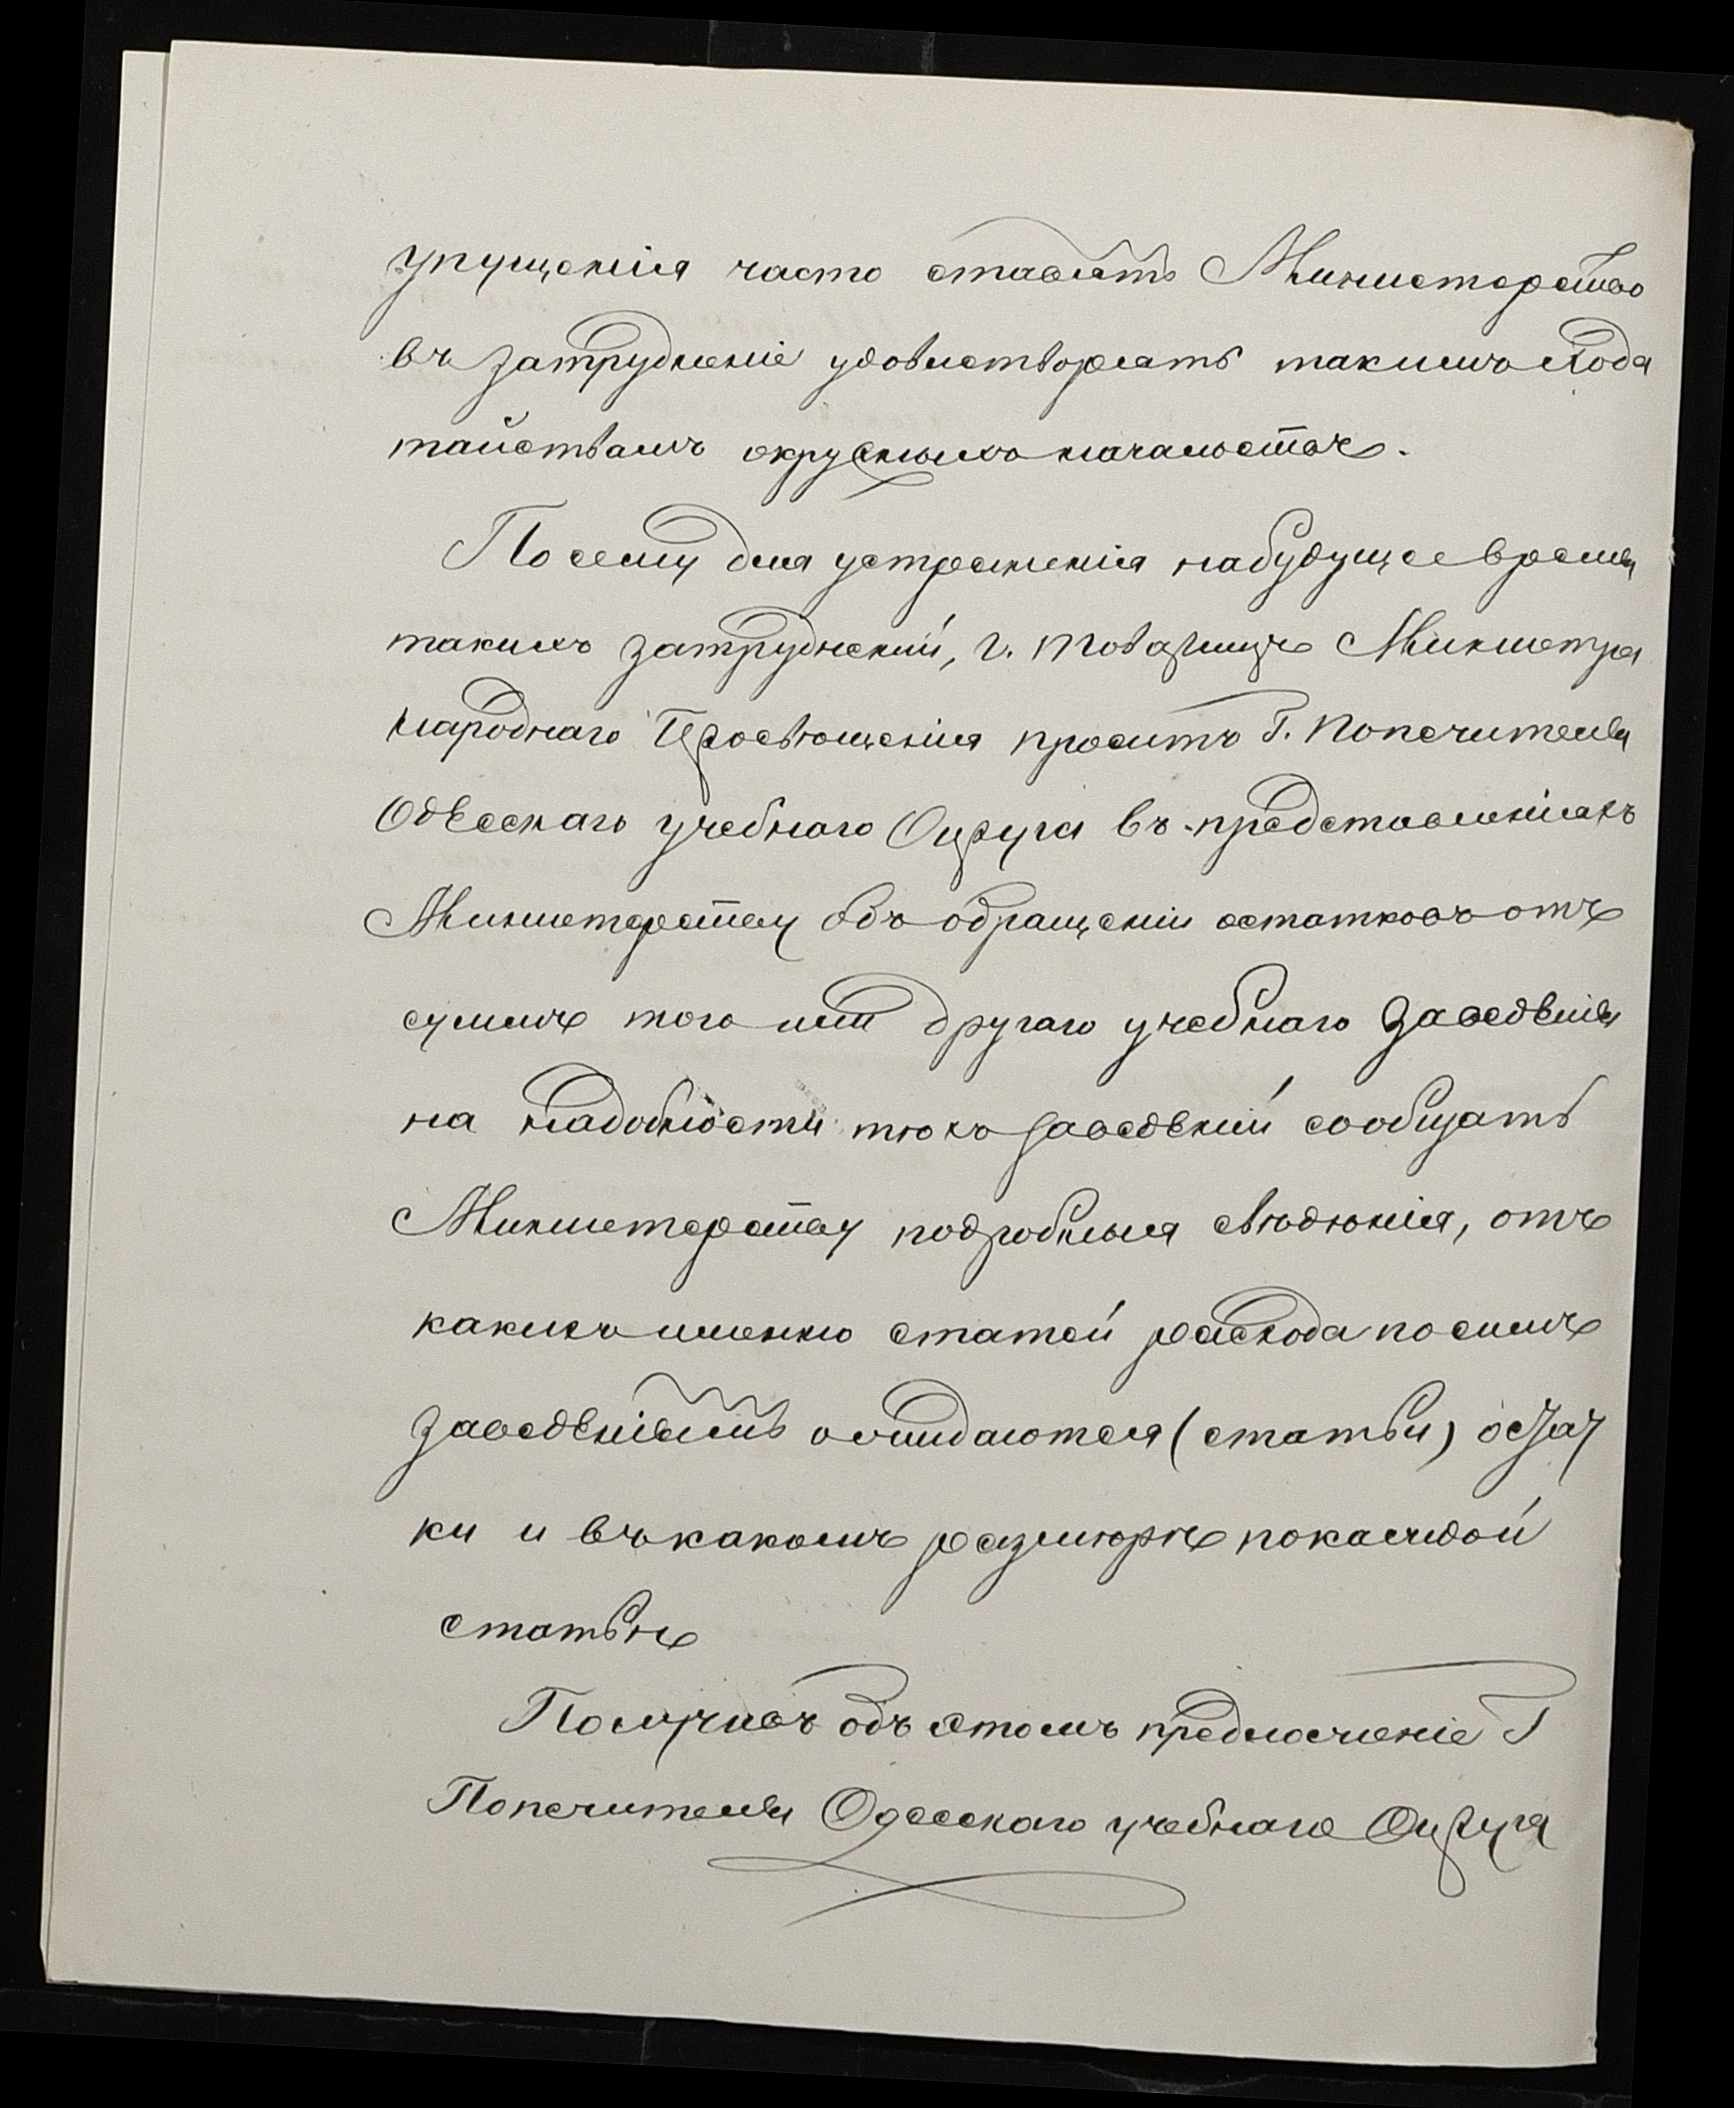 упущенія часто ставятъ Министерство
въ затрудненіе удовлетворять такимъ хода
тайствамъ окружныхъ начальствъ.
Посему для устраненія набудущее время
такихъ затрудненій, г. Товарищъ Министра
народнаго Просвѣщенія проситъ Г. Попечителя
Одесскаго учебнаго Округа въ представленіяхъ
Министерству объ обращеніи остатковъ отъ
суммъ того или другаго учебнаго заведенія
на надобности тѣхъ заведеній сообщать
Министерству подробныя свѣдѣнія, отъ
какихъ именно статей расхода по симъ
заведеніямъ ожидаются (статьи) остат
ки и въ какомъ размѣрѣ по каждой
статьѣ
Получивъ объ этомъ предложеніе Г
Попечителя Одесскаго учебнаго Округа